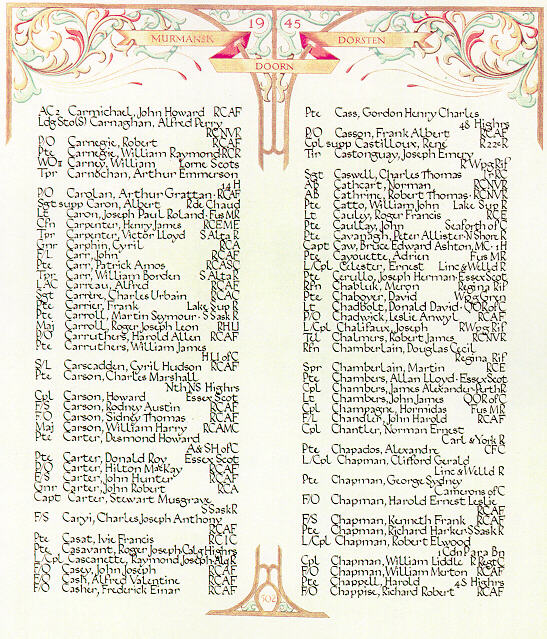 19 45
MURMANSK
DORSTEN
DOORN
AC2 Carmichael, John Howard RCAF
Ldg Sto(S) Carnaghan, Alfred Perry
RCNVR
P/O Carnegie, Robert RCAF
Pte Carnegie, William Raymond RCR
WOII Carney, William Lorne Scots
Tpr Carnochan, Arthur Emmerson
14 H
P/O Carolan, Arthur Grattan · RCAF
Sgt supp Caron, Albert R de Chaud
Lt Caron, Joseph Paul Roland · Fus MR
Cfn Carpenter, Harry James RCEME
Tpr Carpenter, Victor Lloyd S Alta R
Gnr Carphin, Cyril RCA
F/L Carr, John RCAF
Pte Carr, Patrick Amos RCASC
Tpr Carr, William Borden S Alta R
LAC Carreau, Alfred RCAF
Sgt Carrere, Charles Urbain RCAC
Pte Carrier, Frank Lake Sup R
Pte Carroll, Martin Seymour · S Sask R
Maj Carroll, Roger Joseph Leon RHLI
P/O Carruthers, Harold Allen RCAF
Pte Carruthers, William James
HLI of C
S/L Carscadden, Cyril Hudson RCAF
Pte Carson, Charles Marshall
Nth NS Highrs
Cpl Carson, Howard Essex Scot
F/S Carson, Rodney Austin RCAF
F/O Carson, Sidney Thomas RCAF
Maj Carson, William Harry RCAMC
Pte Carter, Desmond Howard
A & SH of C
Pte Carter, Donald Roy Essex Scot
P/O Carter, Hilton MacKay RCAF
F/S Carter, John Hunter RCAF
Gnr Carter, John Robert RCA
Capt Carter, Stewart Musgrave
S Sask R
F/S Caryi, Charles Joseph Anthony
RCAF
Pte Casat, Ivie Francis RCIC
Pte Casavant, Roger Joseph Calg Highrs
L/Cpl Cascanette, Raymond Joseph · Alg R
F/O Casey, John Joseph RCAF
F/O Cash, Alfred Valentine RCAF
F/O Casher, Frederick Einar RCAF
Pte Cass, Gordon Henry Charles
48 Highrs
P/O Casson, Frank Albert RCAF
Cpl supp Castilloux, René R 22e R
Tir Castonguay, Joseph Emery
R Wpg Rif
Sgt Caswell, Charles Thomas
AB Cathcart, Norman RCNVR
AB Cathrine, Robert Thomas · RCNVR
Pte Catto, William John Lake Sup R
Lt Cauley, Roger Francis RCE
Pte Caultay, John Seaforth of C
Pte Cavanagh, Peter Allister · N Shore R
Capt Caw, Bruce Edward Ashton, MC · 1 H
Pte Cayouette, Adrien Fus MR
L/Cpl Celester, Ernest Linc & Welld R
Pte Cerullo, Joseph Herman · Essex Scot
Rfn Chabluk, Meron Regina Rif
Pte Chaboyer, David Wpg Gren
Lt Chadbolt, Donald David · QOR of C
P/O Chadwick, Leslie Anwyl RCAF
L/Cpl Chalifaux, Joseph R Wpg Rif
Tel Chalmers, Robert James RCNVR
Rfn Chamberlain, Douglas Cecil
Regina Rif
Spr Chamberlain, Martin RCE
Pte Chambers, Allan Lloyd · Essex Scot
Cpl Chambers, James Alexander · Perth R
Lt Chambers, John James QOR of C
Cpl Champagne, Hormidas Fus MR
F/L Chandler, John Harold RCAF
Cpl Chantler, Norman Ernest
Carl & York R
Pte Chapados, Alexandre CFC
L/Cpl Chapman, Clifford Gerald
Linc & Welld R
Pte Chapman, George Sydney
Camerons of C
F/O Chapman, Harold Ernest Leslie
RCAF
F/S Chapman, Kenneth Frank RCAF
Pte Chapman, Richard Harker S Sask R
L/Cpl Chapman, Robert Elwood
1 Cdn Para Bn
Cpl Chapman, William Liddle R Regt C
F/O Chapman, William Merton RCAF
Pte Chappell, Harold 48 Highrs
F/O Chappise, Richard Robert RCAF
502